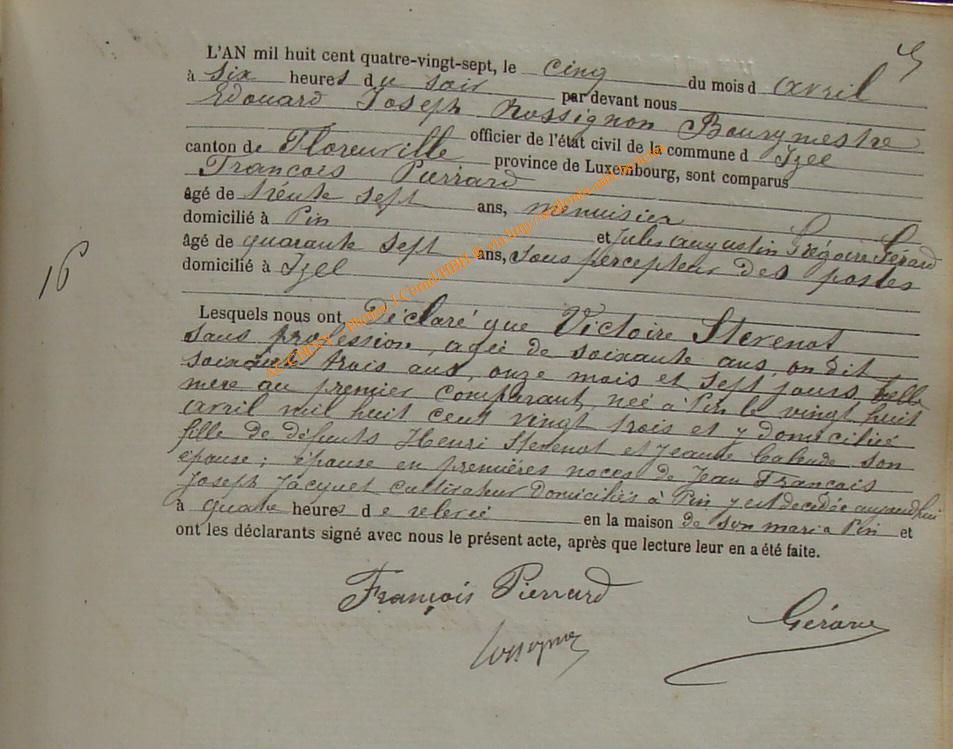 L'AN mil huit cent quatre-vingt-sept, le cinq du mois d avril
à six heures du soir par devant nous
Edouard Joseph Rossignon Bourgmestre
officier de l'état civil de la commune d Izel
canton de Florenville province de Luxembourg, sont comparus
François Pierrard
âgé de trente sept ans, menuisier
domicilié à Pin et Jules Augustin Grégoire Gérard
âgé de quarante sept ans, sous percepteur des postes
domicilié à Izel
16
Lesquels nous ont, Déclaré que Victoire Stevenot
sans profession, agée de soixante ans, on dit
soixante trois ans, onze mois et sept jours, belle
mère au premier comparant, née à Pin le vingt huit
avril mil huit cent vingt trois et y domiciliée
fille de défunts Henri Stevenot et Jeanne son
épouse; épouse en premières noces de Jean François
Joseph Jacquet cultivateur domiciliés à Pin y est décédée aujourd'hui
à quatre heures d e relevée en la maison de son mari à Pin et
ont les déclarants signé avec nous le présent acte, après que lecture leur en a été faite.
François Pierrard
Gérard